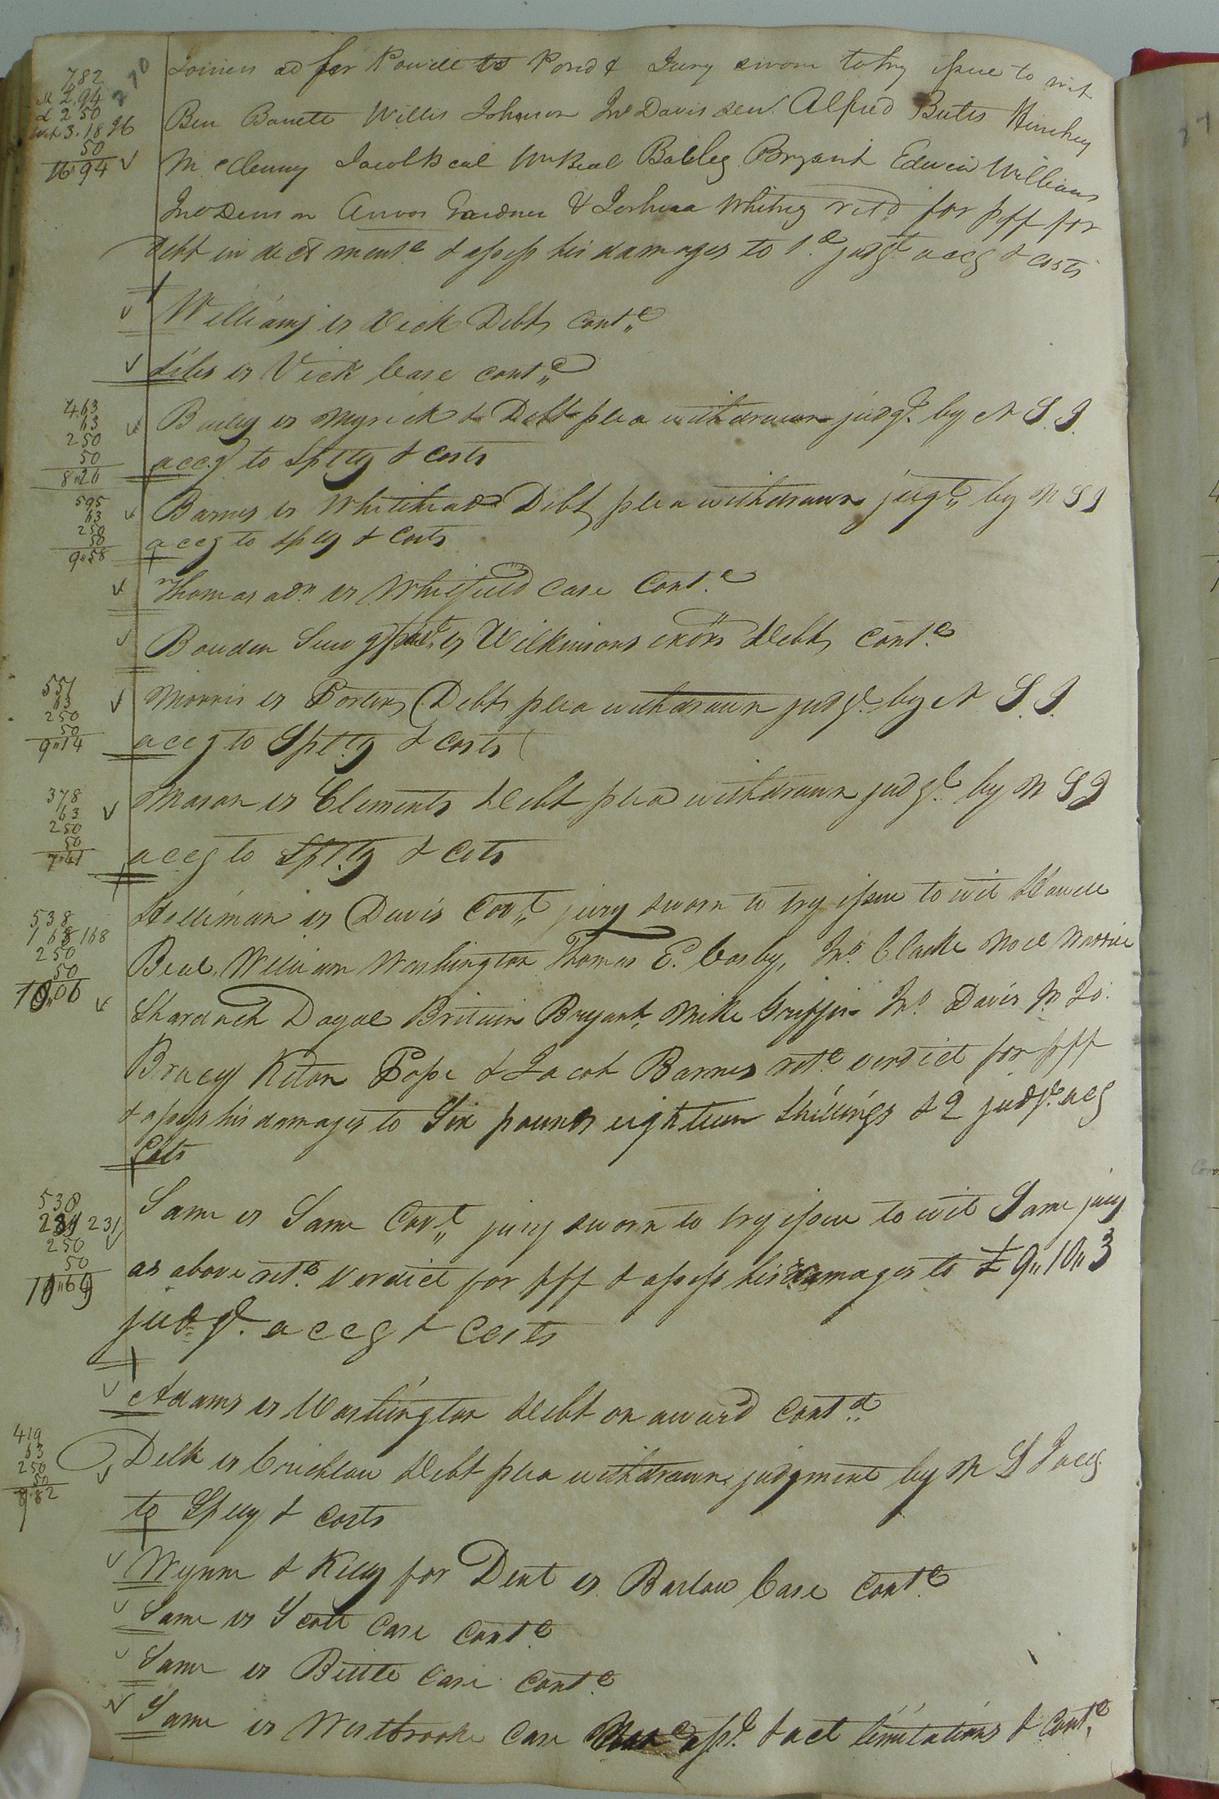 782
2.94
2 50
3.18 96
50
16"94
270
Joiner ad for Powell vs Pond & Jury sworn to try issue to wit
Ben Barrett Willis Johnson Jno Davis senr Alfred Butts Hinchey
McClenny Jacob Beal Wm Beal Bryant Edwin Williams
Jno Denson Amos Gardner & Joshua Whitney retd for pff for
debt in dect & assess his damages to 1d judgt accg & costs
Williams vs Vick Debt contd
Liles vs Vick Case contd
463
63
250
50
8"26
Bailey vs Myrick & Debt plea withdrawn judgt by N S I
accg to Splty & costs
595
63
250
50
9"58
Barnes vs Whitehead Debt plea withdrawn judgt by N S I
accg to splty & Costs
Thomas adr vs Whitfield Case Contd
Bowden vs Wilkinsons exors Debt Contd
551
63
250
50
9"14
Morris vs Porters Debt plea withdrawn judgt by N S I
accg to Splty & costs
378
63
250
50
7"41
Mason vs Clements Debt plea withdrawn judgt by N S I
accg to Splty & Cots
538
168 168
250
50
10"06
Holliman vs Davis Covt jury sworn to try issue to wit Howell
Beal William Washington Thomas E. Cosby, Jno Clarke Noel
Shadrach Britain Bryant Mike Griffin Jno Davis
Bracey Kiton Pope & Jacob Barnes retd verdict for pff
& assess his damages to Six pounds eighteen shillings & 2 judgt accg
Cots
538
231 231
250
50
10"69
Same vs Same Covt jury sworn to try issue to wit Same jury
as above retd verdict for pff & assess his damages to £ 9"10"3
judgt accg & costs
Adams vs Washington Debt on award contd
419
63
250
50
7"82
Delk vs Crichlow Debt plea withdrawn judgment by N S I accg
to Splty & costs
Wynne & Kelly for Dent vs Barlow Case contd
Same vs Scott Case contd
Same vs Bittle Case contd
Same vs Westbrooke Case & act limitations & contd